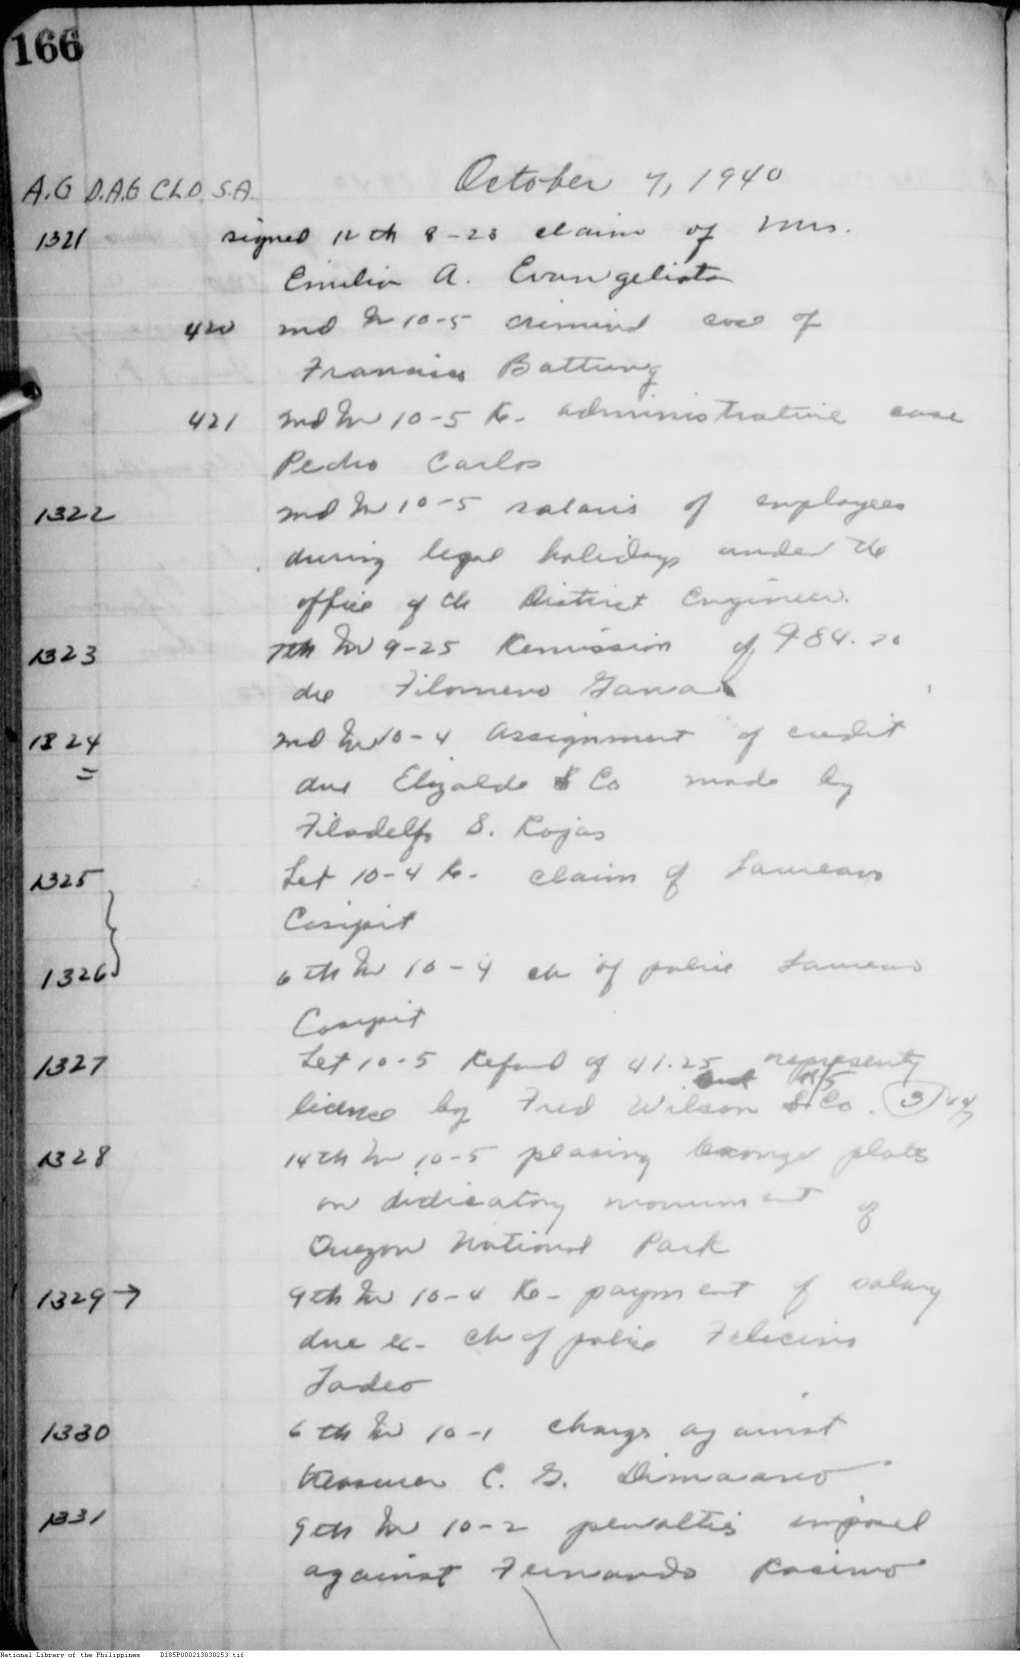 166
October 7, 1940
A.G D.A.G CLO. S.A.
1321 signed 12th 8-28 claim of Mrs.
Emilia A. Evangelista
420 2nd In 10-5 criminal case of
Francisco Battung
421 2nd In 10-5 Re- administrative case
Pedro Carlos
1322 2nd In 10-5 salaries of employees
during legal holidays under the
office of the District Engineer.
1323 7th In 9-25 Remission of ₱84.20
due Filomeno Gana
1324 2nd In 10-4 Assignment of credit
due Elizalde & Co made by
Filadelfo S. Rojas
1325 Let 10-4 Re- claim of Laureano
Cosipit
1326 6th In 10-4 ch of police Laureano
Cosipit
1327 Let 10-5 Refund of 41.25 representg
license by Fred Wilson & Co.
1328 14th In 10-5 placing bronze plates
on dedicatory monument of
Quezon National Park
1329 → 9th In 10-4 Re- payment of salary
due ex- ch of police Feliciano
Tadeo
1330 6th In 10-1 charge against
treasurer C. G. Dimaano
1331 9th In 10-2 penalties imposed
against Fernando Rosimo
National Library of the Philippines D185P000213030253.tif